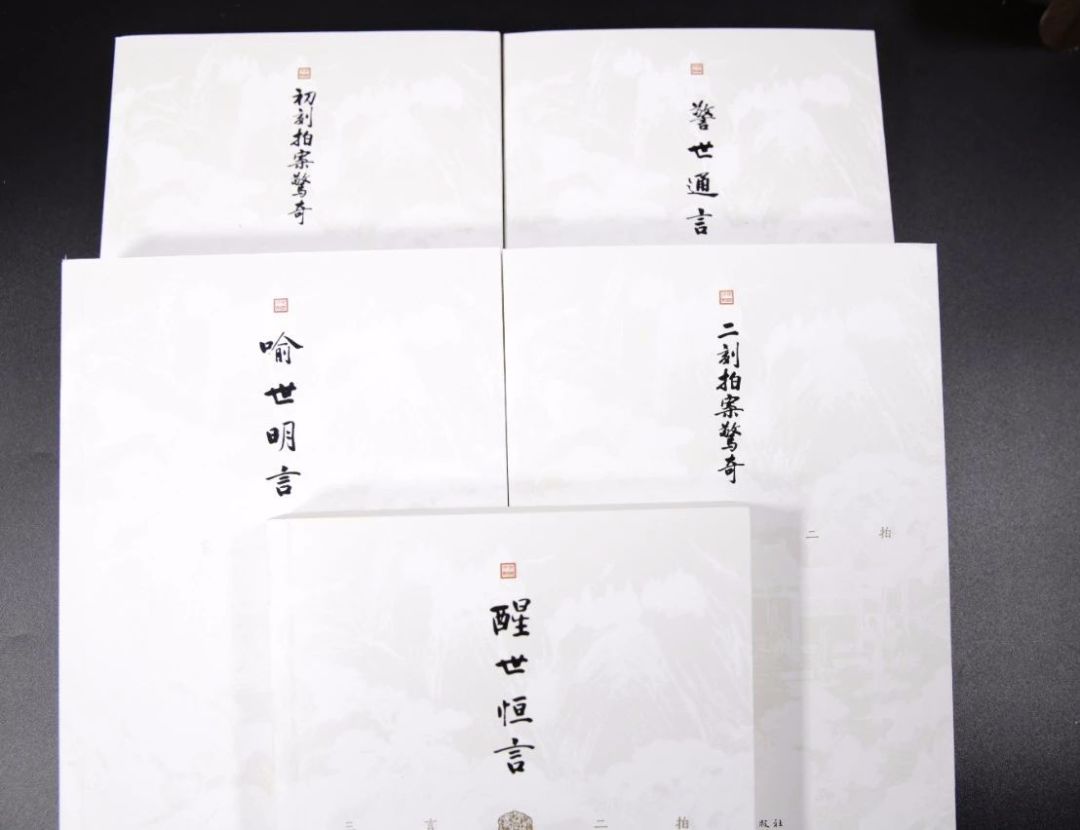 初刻拍案驚奇
警世通言
喻世明言
二刻拍案驚奇
二拍
醒世恒言
三言
二拍
版社